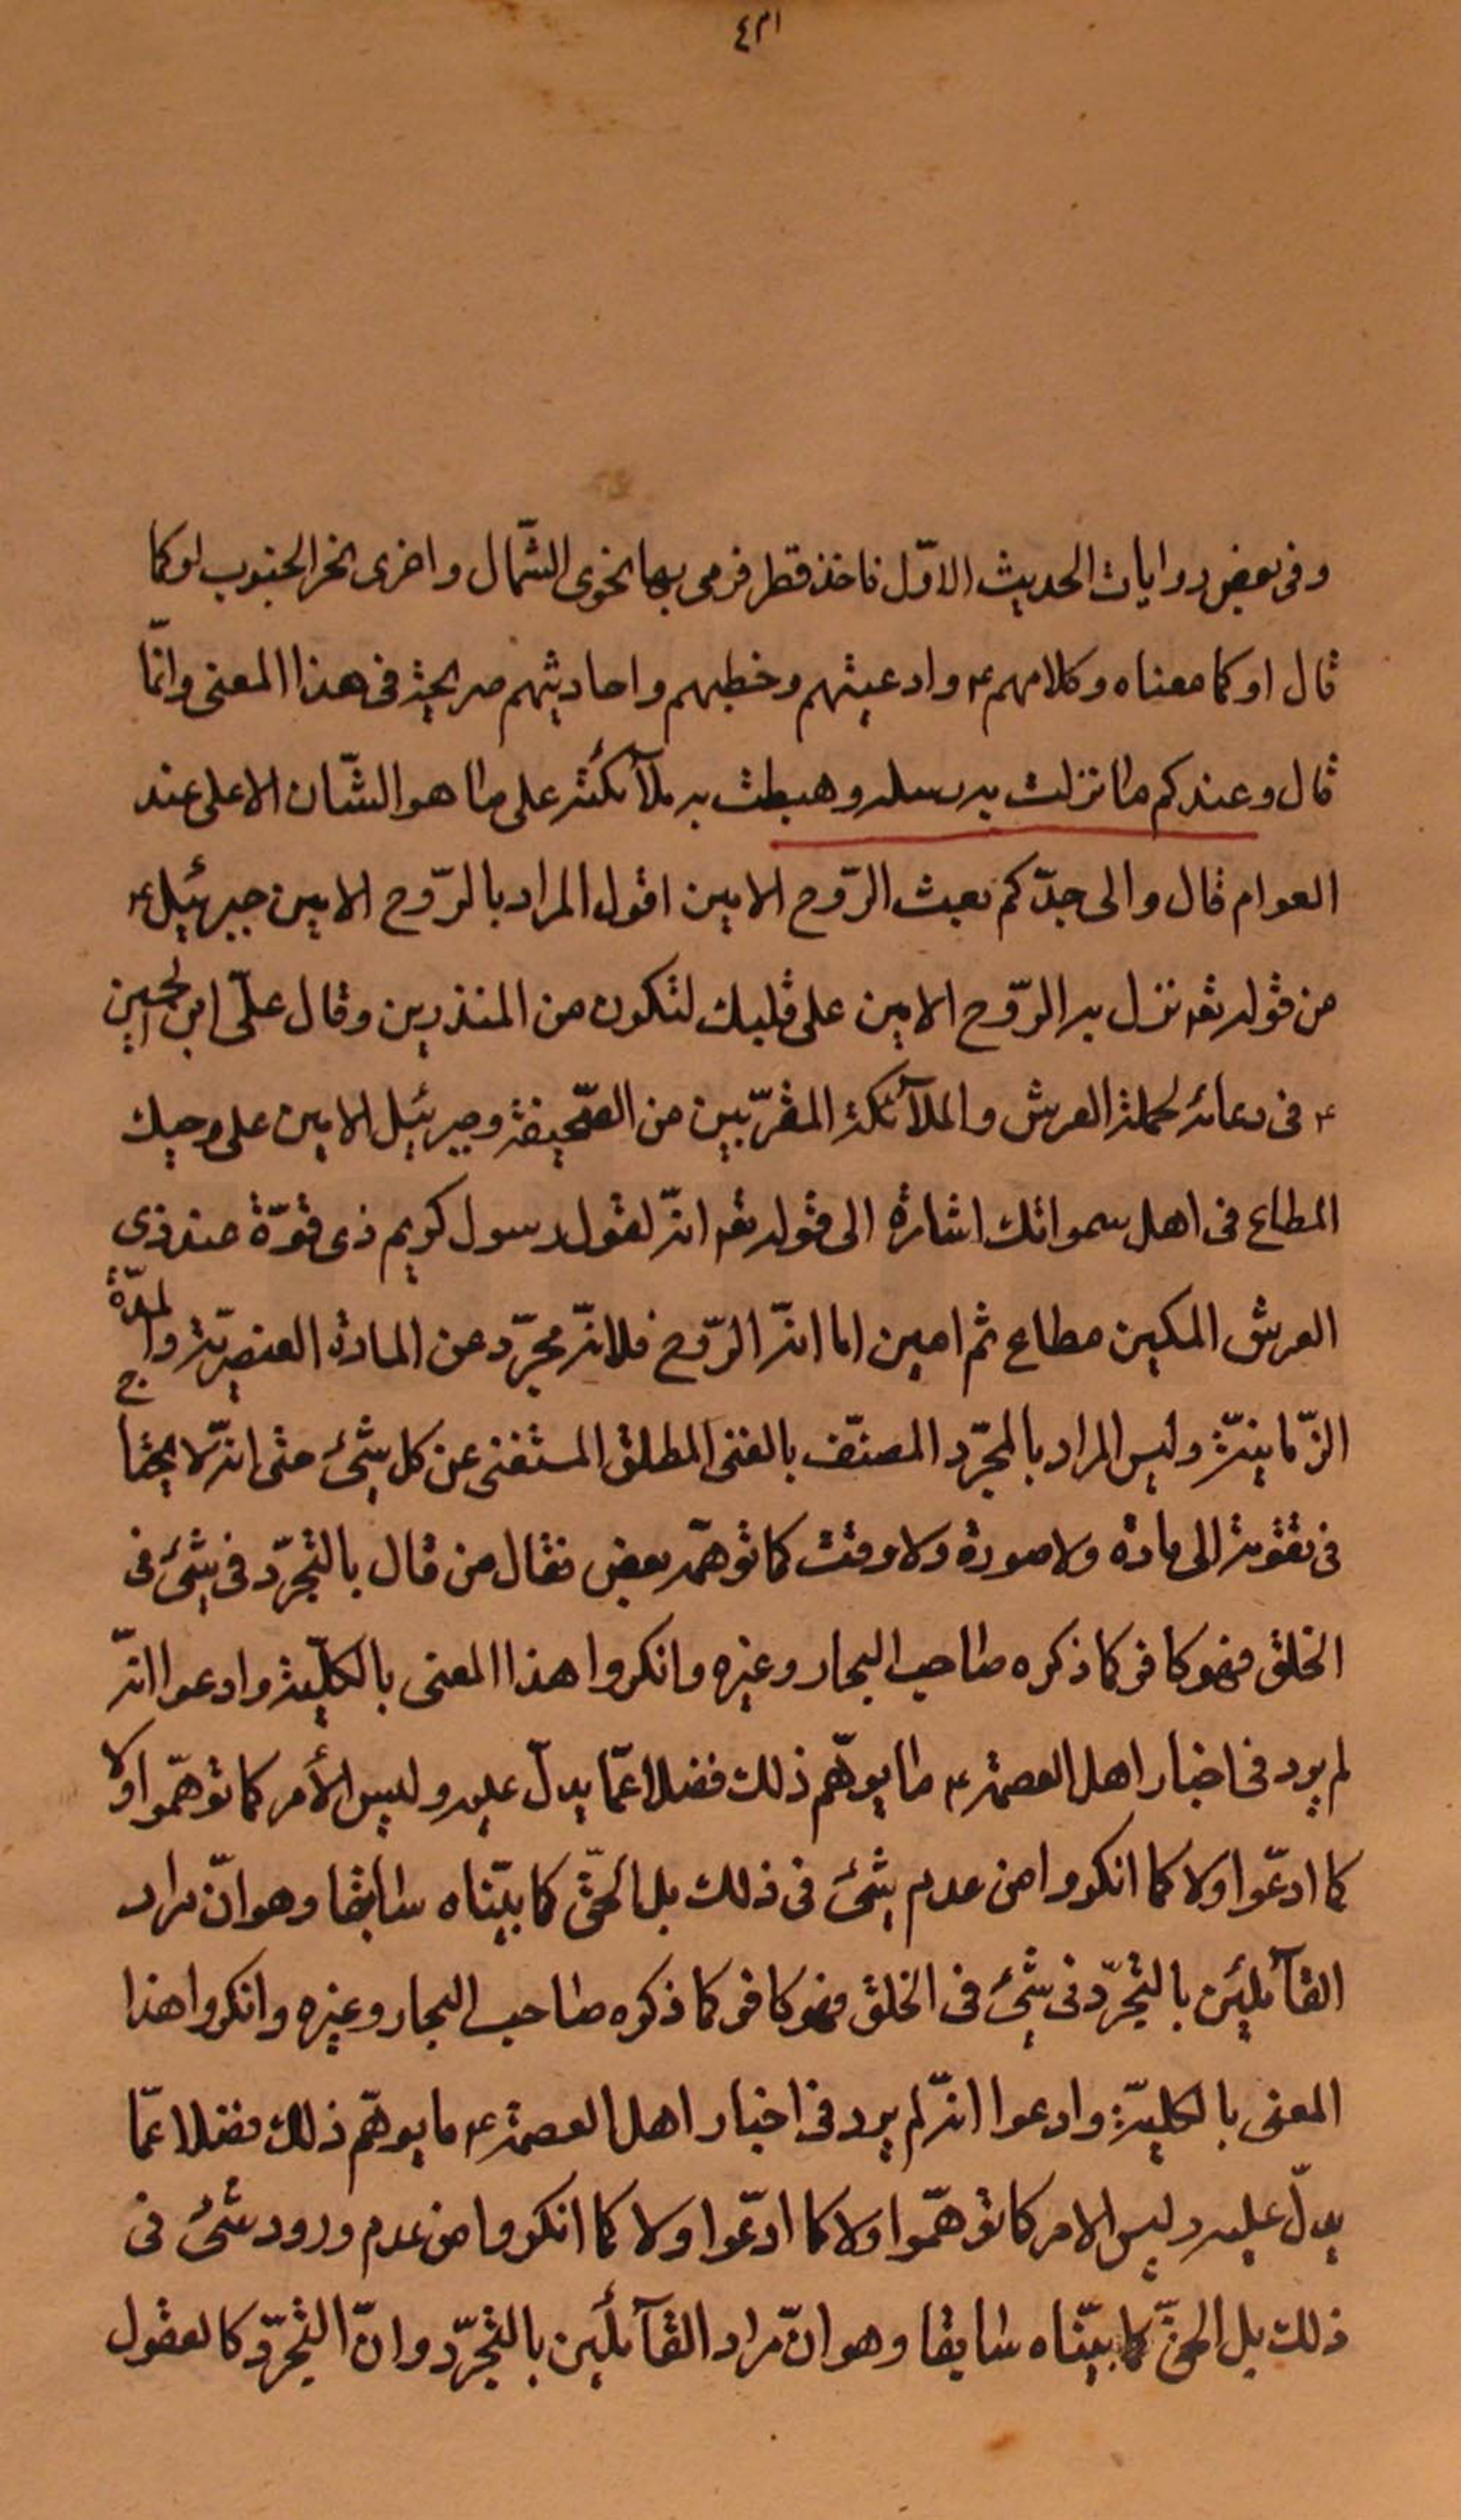 وفى بعض روايات الحديث الاوّل فاخذ قطر فرمى بها نحوى الشّمال واخرى نحر الجنوب او كما
قال او كما معناه وكلامهم ع وادعيتهم وخطبهم واحاديثهم صريحة فى هذا المعنى وانّما
قال وعندكم ما نزلت به رسله وهبطت به ملآئكته على ما هو الشّان الاعلى عند
العوام قال والى جدّكم بعث الرّوح الامين اقول المراد بالرّوح الامين جبرئيل ع
من قوله تعه نزل به الرّوح الامين على قلبك لتكون من المنذرين وقال علىّ ابن الحسين
ع فى دعائه لحملة العرش والملآئكة المقرّبين من الصّحيفة وجبرئيل الامين على وحيك
المطاع فى اهل سمواتك اشارة الى قوله تعه انّه لقول رسول كريم ذى قوّة عند ذى
العرش المكين مطاع ثم امين اما انّه الرّوح فلانّه مجرّد عن المادة العنصريّة والمدّة
الزّمانيّة وليس المراد بالمجرّد المصنّف بالغنى المطلق المستغنى عن كل شئ حتى انّه لا يحتاج
فى تقومه الى مادة ولا صورة ولا وقت كما توهّمه بعض فقال من قال بالتجرّد فى شئ فى
الخلق فهو كافر كما ذكره صاحب البحار وغيره وانكروا هذا المعنى بالكلّية وادعوا انّه
لم يرد فى اخبار اهل العصمة ع ما يوهّم ذلك فضلا عمّا يدلّ عليه وليس الأمر كما توهّموا ولا
كما ادعّوا ولا كما انكروا من عدم شئ فى ذلك بل الحقّ كما بيّناه سابقا وهو انّ مراد
القآئلين بالتجرّد فى شئ فى الخلق فهو كافر كما ذكره صاحب البحار وغيره وانكروا هذا
المعنى بالكليّة وادعوا انّه لم يرد فى اخبار اهل العصمة ع ما يوهّم ذلك فضلا عمّا
يدلّ عليه وليس الامر كما توهّموا ولا كما ادّعوا ولا كما انكروا من عدم ورود شئ فى
ذلك بل الحقّ كما بيّناه سابقا وهو انّ مراد القآئلين بالتجرّد وانّ التجرّد كالعقول